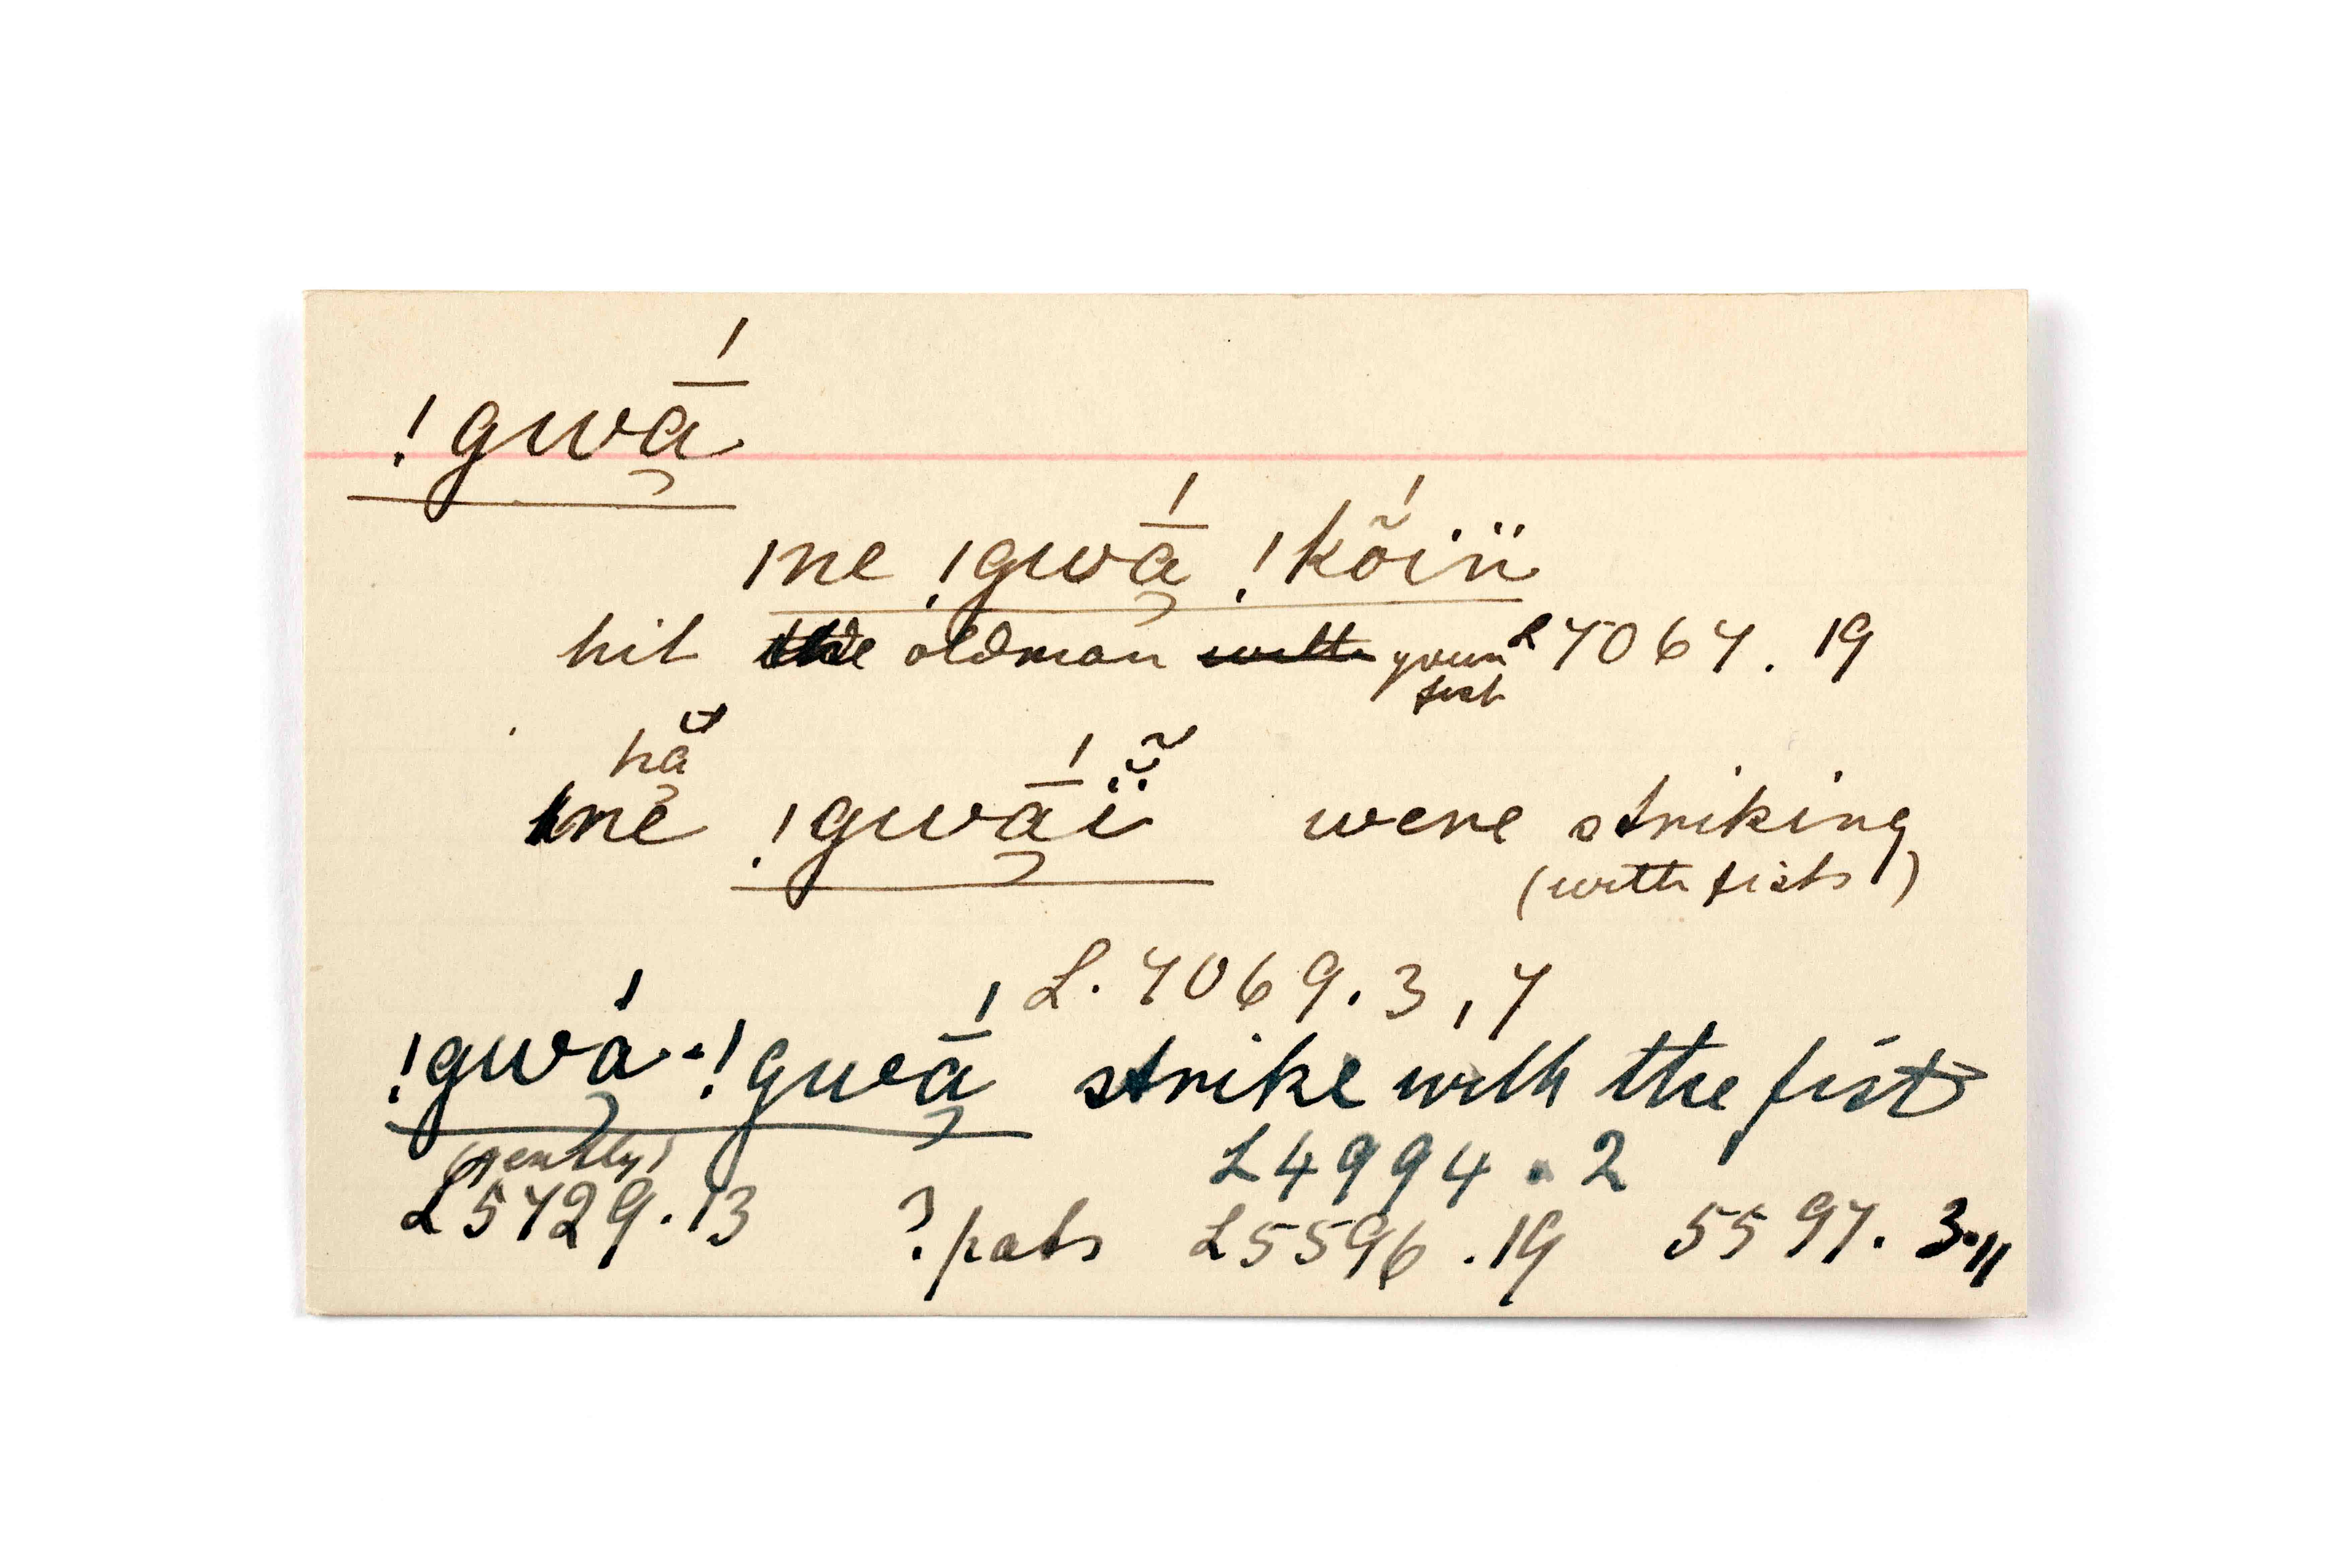 !gwā́
ıne !gwā́ !kṍiṅ
hit the oldman with your L 7067.19
fist
hä
ıne !gwā́ĭ̃ were striking
(with fists)
L. 7069.3,7
!gwá-!gwā́ strike with the fist
(gently) L4994.2
L5729.13 ? pats L5596.19 5597.3.11